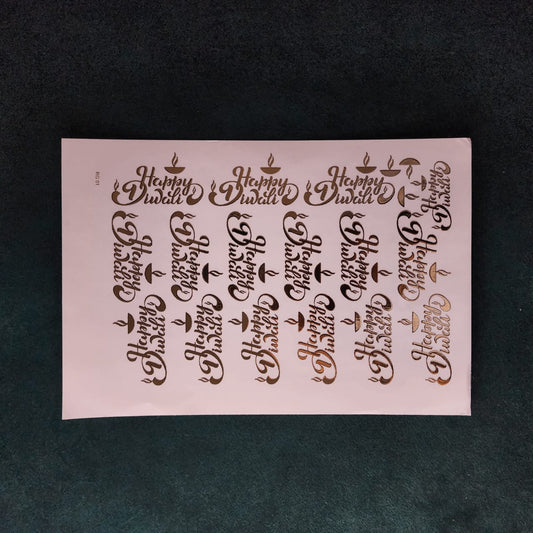 Happy
Diwali
Happy
Diwali
Happy
Diwali
Happy
Diwali
Happy
Diwali
Happy
Diwali
Happy
Diwali
Happy
Diwali
Happy
Diwali
Happy
Diwali
Happy
Diwali
Happy
Diwali
Happy
Diwali
Happy
Diwali
Happy
Diwali
Happy
Diwali